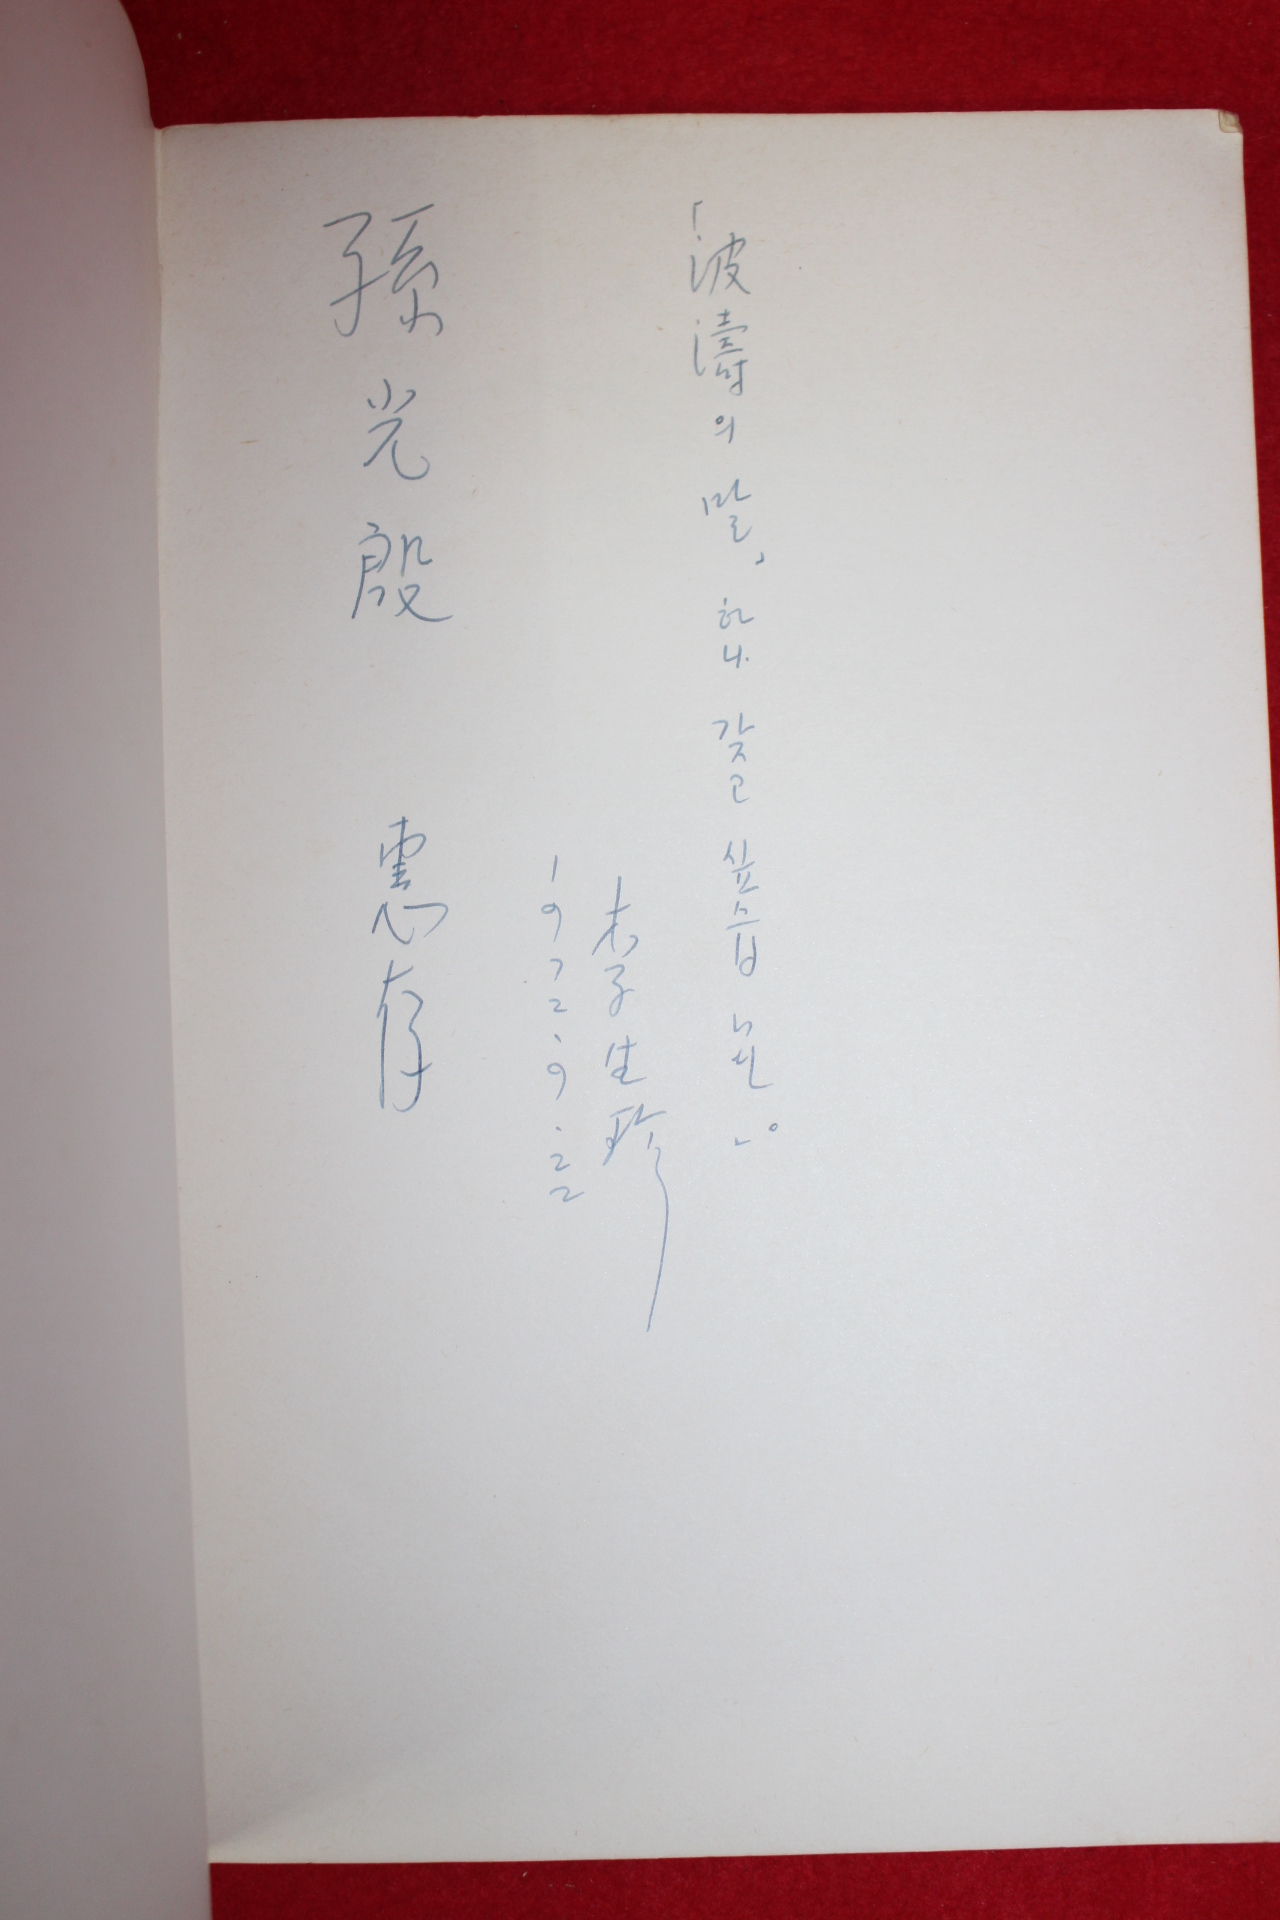 「波濤의 말, 하나 갖고 싶습니다。」
李生珍
1972.9.22
孫光殷 惠存